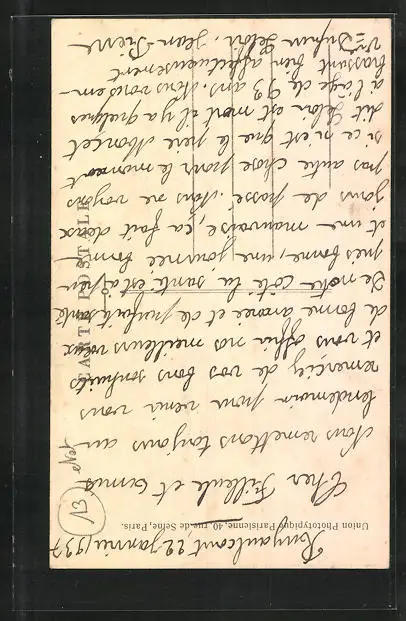 22 janvier 1937
Cher Filleule et Amis
Nous remettons toujours au
lendemain pour venir vous
remercier de vos bons souhaits
et vous offrir nos meilleurs vœux
de bonne année et de parfaite santé
De notre côté la santé est à peu
près bonne, une journée bonne
et une mauvaise, ça fait deux
jours de passé. Nous ne voyons
pas autre chose pour le moment
si ce n'est que le père Moncet
dit Leloir est mort il y a quelques
à l'âge de 93 ans. Nous vous em-
brassant bien affectueusement
Vve Leloir. Jean-Pierre
CARTE POSTALE
Union Phototypique Parisienne, 40, rue de Seine, Paris.
13